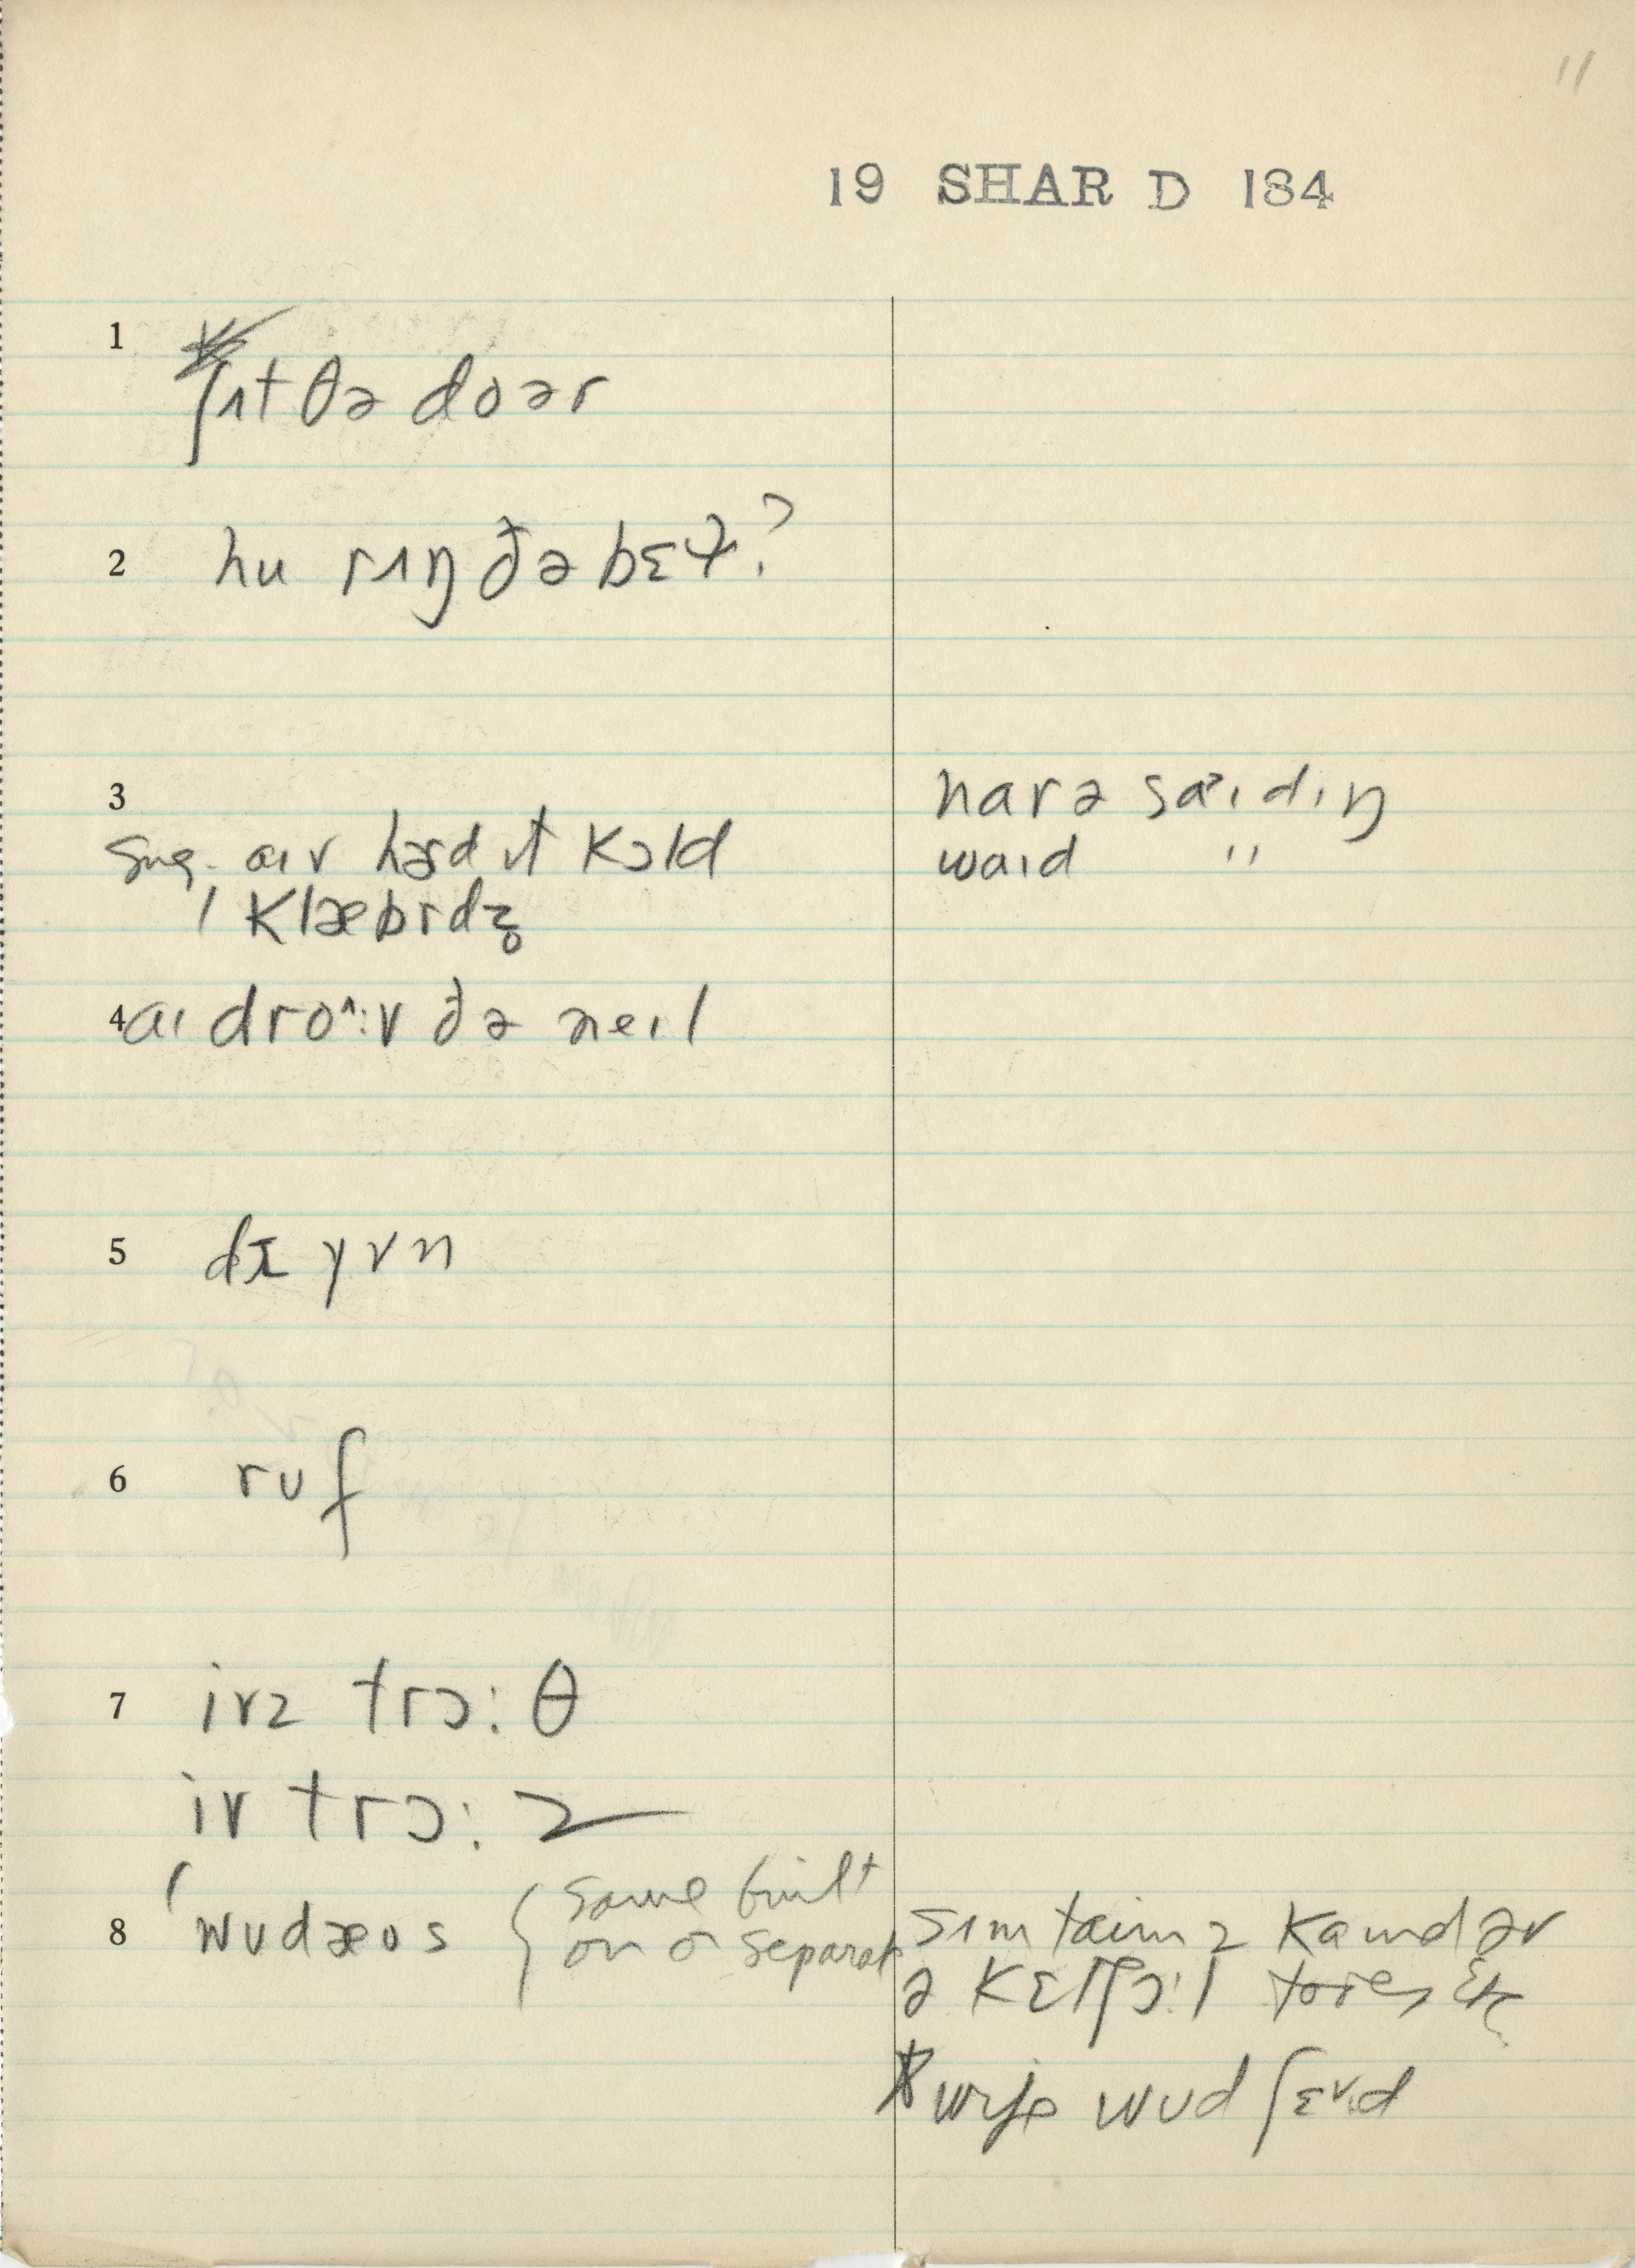 11
19 SHAR D 184
1
ʃɪt θə doər
2 hu rɪŋ ðə bɛɫ?
3
sug. aɪv hɜd ɪt kɔld
klæbrdz̥
naræ saɪdɪŋ
waɪd "
4 aɪ droʌ:v ðə neɪl
5 dɪ yvn
6 ruf
7 ivz trɔ:θ
iv trɔ:z
8 wudæus { some built
on or separate
sɪmtaɪmz kaɪnd əv
ə
wife wud ʃɛvd